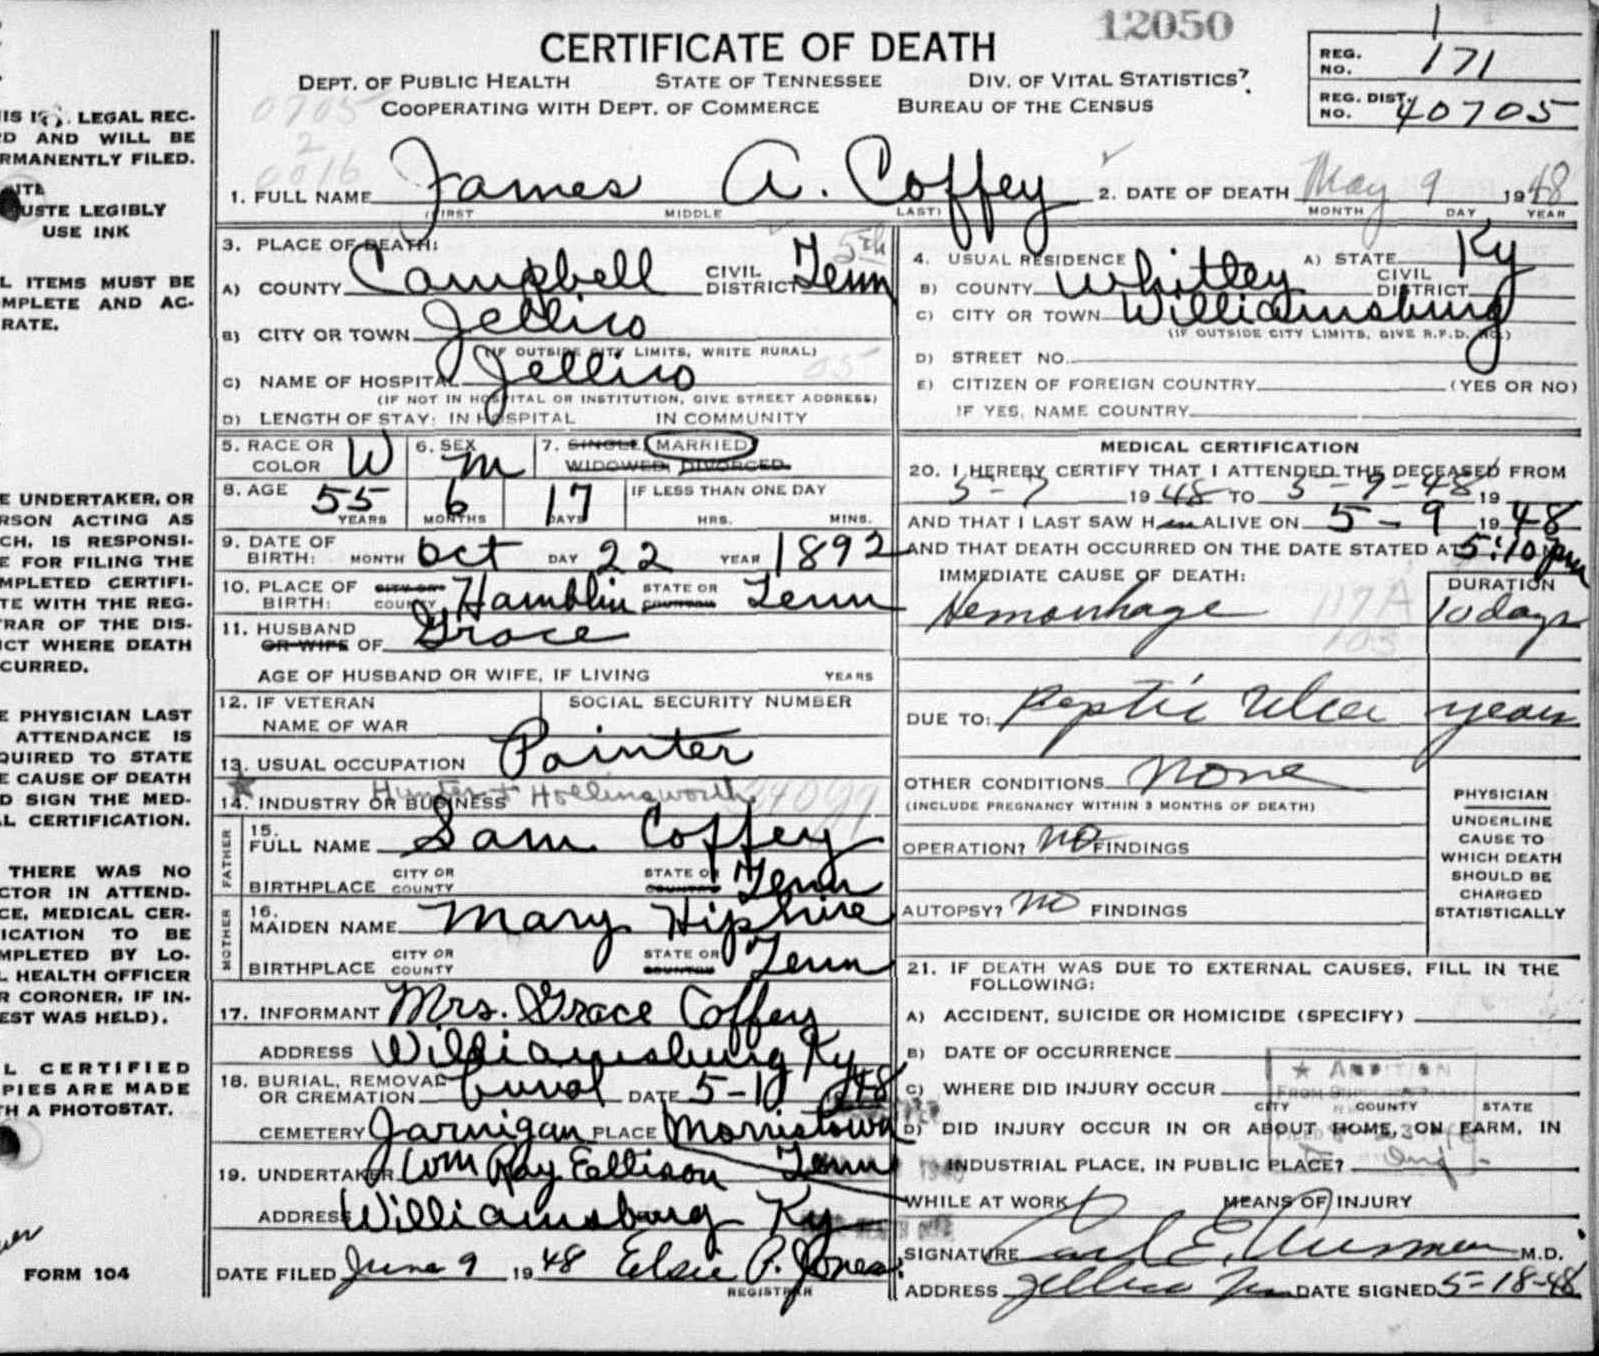 12050
CERTIFICATE OF DEATH
DEPT. OF PUBLIC HEALTH STATE OF TENNESSEE DIV. OF VITAL STATISTICS
COOPERATING WITH DEPT. OF COMMERCE BUREAU OF THE CENSUS
REG. NO. 171
REG. DIST. NO. 40705
0705
2
0016
1. FULL NAME James A. Coffey 2. DATE OF DEATH May 9 1948
(FIRST MIDDLE LAST) MONTH DAY YEAR
3. PLACE OF DEATH: 5th
A) COUNTY Campbell CIVIL DISTRICT Tenn
B) CITY OR TOWN Jellico
(IF OUTSIDE CITY LIMITS, WRITE RURAL)
C) NAME OF HOSPITAL Jellico 05
(IF NOT IN HOSPITAL OR INSTITUTION, GIVE STREET ADDRESS)
D) LENGTH OF STAY: IN HOSPITAL IN COMMUNITY
4. USUAL RESIDENCE A) STATE Ky
B) COUNTY Whitley CIVIL DISTRICT
C) CITY OR TOWN Williamsburg
(IF OUTSIDE CITY LIMITS, GIVE R.F.D. NO.)
D) STREET NO.
E) CITIZEN OF FOREIGN COUNTRY (YES OR NO)
IF YES, NAME COUNTRY
5. RACE OR COLOR W 6. SEX M 7. SINGLE MARRIED
WIDOWED, DIVORCED
8. AGE 55 YEARS 6 MONTHS 17 DAYS IF LESS THAN ONE DAY
HRS. MINS.
9. DATE OF BIRTH: MONTH Oct DAY 22 YEAR 1892
10. PLACE OF BIRTH: CITY OR COUNTY Hamblin STATE OR COUNTRY Tenn
11. HUSBAND OR WIFE OF Grace
AGE OF HUSBAND OR WIFE, IF LIVING YEARS
12. IF VETERAN NAME OF WAR SOCIAL SECURITY NUMBER
13. USUAL OCCUPATION Painter
14. INDUSTRY OR BUSINESS Hunter + Hollingsworth
FATHER
15. FULL NAME Sam Coffey
BIRTHPLACE CITY OR COUNTY STATE OR COUNTRY Tenn
MOTHER
16. MAIDEN NAME Mary Hipshire
BIRTHPLACE CITY OR COUNTY STATE OR COUNTRY Tenn
17. INFORMANT Mrs. Grace Coffey
ADDRESS Williamsburg Ky
18. BURIAL, REMOVAL OR CREMATION burial DATE 5-10 1948
CEMETERY Jarnigan PLACE Morristown
Tenn
19. UNDERTAKER Wm Ray Ellison
ADDRESS Williamsburg Ky
DATE FILED June 9 1948 Elsie P. Jones
REGISTRAR
MEDICAL CERTIFICATION
20. I HEREBY CERTIFY THAT I ATTENDED THE DECEASED FROM
5-7 1948 TO 5-9-48 19
AND THAT I LAST SAW HIM ALIVE ON 5-9 1948
AND THAT DEATH OCCURRED ON THE DATE STATED AT 5:10 pm
IMMEDIATE CAUSE OF DEATH: DURATION
Hemorrhage 117A 10 days
103
DUE TO: Peptic Ulcer years
OTHER CONDITIONS None
(INCLUDE PREGNANCY WITHIN 3 MONTHS OF DEATH)
OPERATION? no FINDINGS
AUTOPSY? no FINDINGS
PHYSICIAN
UNDERLINE
CAUSE TO
WHICH DEATH
SHOULD BE
CHARGED
STATISTICALLY
21. IF DEATH WAS DUE TO EXTERNAL CAUSES, FILL IN THE
FOLLOWING:
A) ACCIDENT, SUICIDE OR HOMICIDE (SPECIFY)
B) DATE OF OCCURRENCE
C) WHERE DID INJURY OCCUR
CITY COUNTY STATE
D) DID INJURY OCCUR IN OR ABOUT HOME, ON FARM, IN
INDUSTRIAL PLACE, IN PUBLIC PLACE?
WHILE AT WORK MEANS OF INJURY
SIGNATURE Carl E. M.D.
ADDRESS Jellico Tenn DATE SIGNED 5-18-48
★ ADDITION
HIS IS A LEGAL REC-
RD AND WILL BE
RMANENTLY FILED.
USTE LEGIBLY
USE INK
L ITEMS MUST BE
MPLETE AND AC-
RATE.
E UNDERTAKER, OR
RSON ACTING AS
CH, IS RESPONSI-
E FOR FILING THE
MPLETED CERTIFI-
TE WITH THE REG-
TRAR OF THE DIS-
ICT WHERE DEATH
CURRED.
E PHYSICIAN LAST
ATTENDANCE IS
QUIRED TO STATE
E CAUSE OF DEATH
D SIGN THE MED-
AL CERTIFICATION.
THERE WAS NO
CTOR IN ATTEND-
CE, MEDICAL CER-
ICATION TO BE
MPLETED BY LO-
L HEALTH OFFICER
R CORONER, IF IN-
EST WAS HELD).
L CERTIFIED
PIES ARE MADE
TH A PHOTOSTAT.
FORM 104